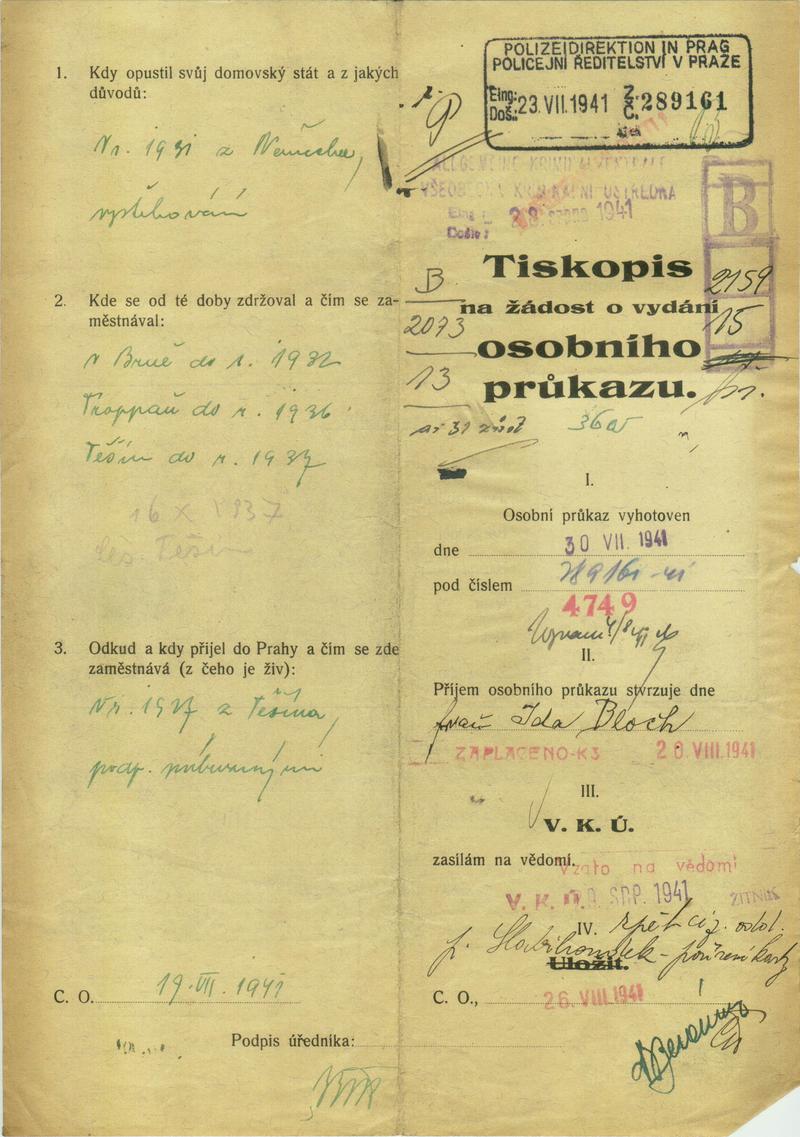 1. Kdy opustil svůj domovský stát a z jakých
důvodů:
V r. 1931 z Německa,
vystěhování
2. Kde se od té doby zdržoval a čím se za-
městnával:
v Brně do r. 1932
Troppau do r. 1936
Těšín do r. 1937
16 X 1937
Čes. Těšín
3. Odkud a kdy přijel do Prahy a čím se zde
zaměstnává (z čeho je živ):
V r. 1937 z Těšína,
podp. příbuznými
C. O. 19. VII. 1941
Podpis úředníka:
POLIZEIDIREKTION IN PRAG
POLICEJNÍ ŘEDITELSTVÍ V PRAZE
Eing.: Došlo: 23. VII. 1941 Z. Č. 289161
ALLGEMEINE KRIMINALZENTRALE
VŠEOBECNÁ KRIMINÁLNÍ ÚSTŘEDNA
Došlo: 1941
B
B
2073
13
2159
15
Tiskopis
na žádost o vydání
osobního
průkazu.
I.
Osobní průkaz vyhotoven
dne 30 VII. 1941
pod číslem
4749
II.
Příjem osobního průkazu stvrzuje dne
frau Ida Bloch
ZAPLACENO-K3 20. VIII. 1941
III.
V. K. Ú.
zasílám na vědomí.
Vzato na vědomí
V. K. Ú. SRP. 1941 ŽITNÍK
IV. zpět
Uložit.
C. O., 26. VIII. 1941